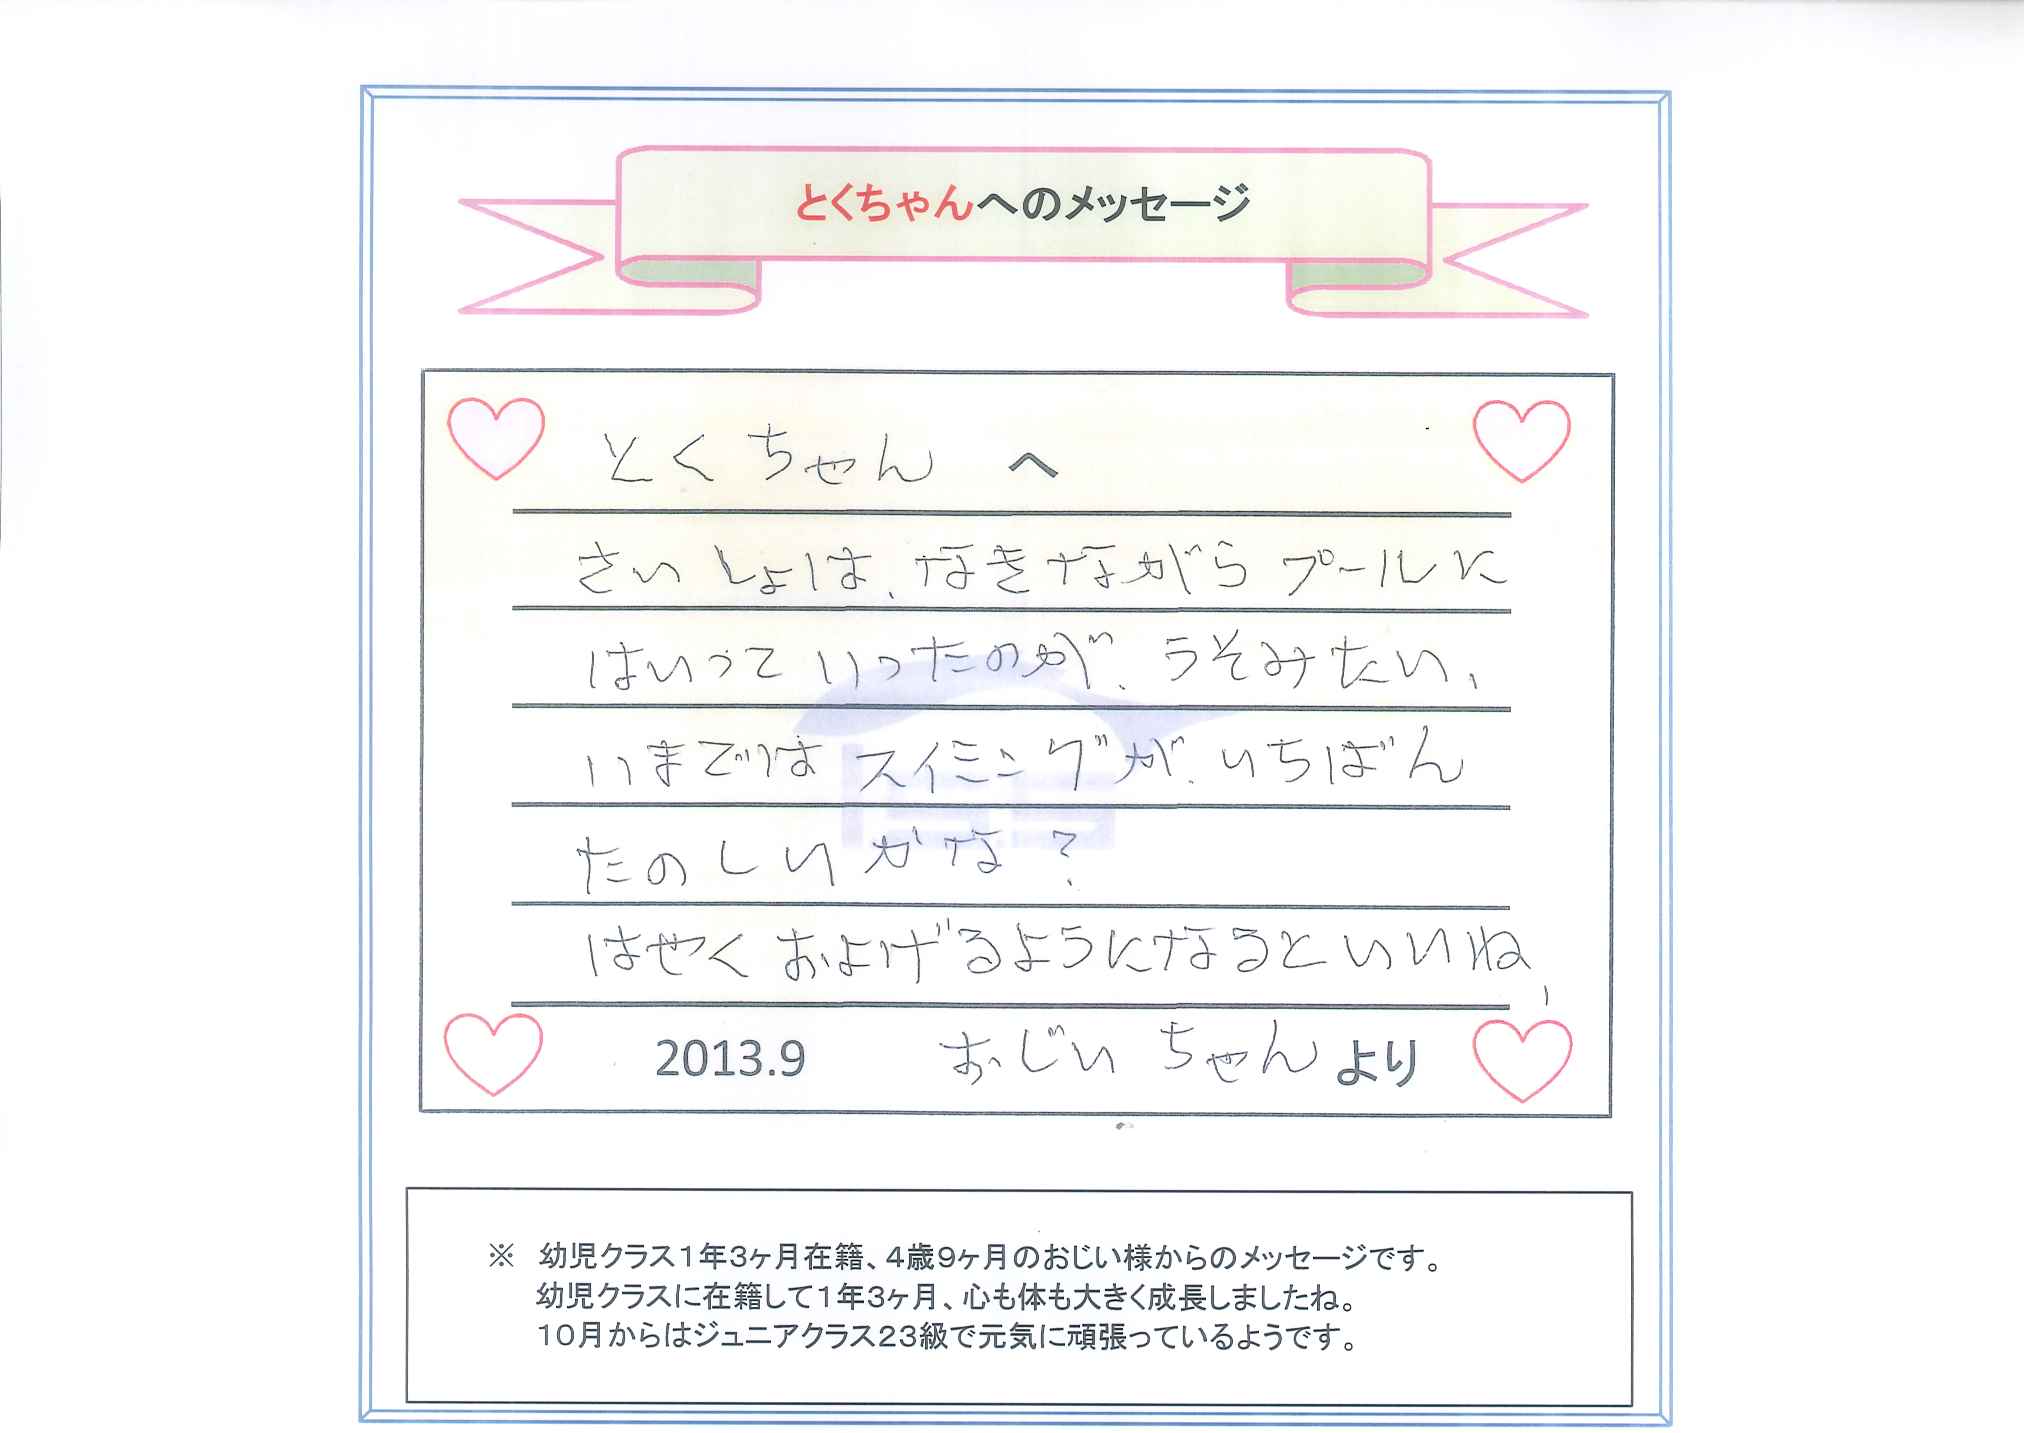 とくちゃんへのメッセージ
とくちゃん へ
さいしょは、なきながらプールに
はいって いったのが、うそみたい、
いまでは スイミングが、いちばん
たのしいかな?
はやく およげるようになるといいね、
2013.9 おじいちゃんより
※ 幼児クラス1年3ヶ月在籍、4歳9ヶ月のおじい様からのメッセージです。
幼児クラスに在籍して1年3ヶ月、心も体も大きく成長しましたね。
10月からはジュニアクラス23級で元気に頑張っているようです。